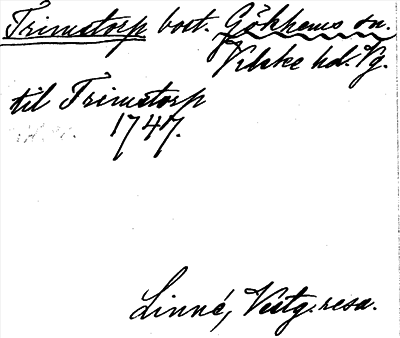 Trimstorp bost. Gökhems sn.
Vilske hd. Vg.
til Trimstorp
1747.
Linné, Vestg. resa.